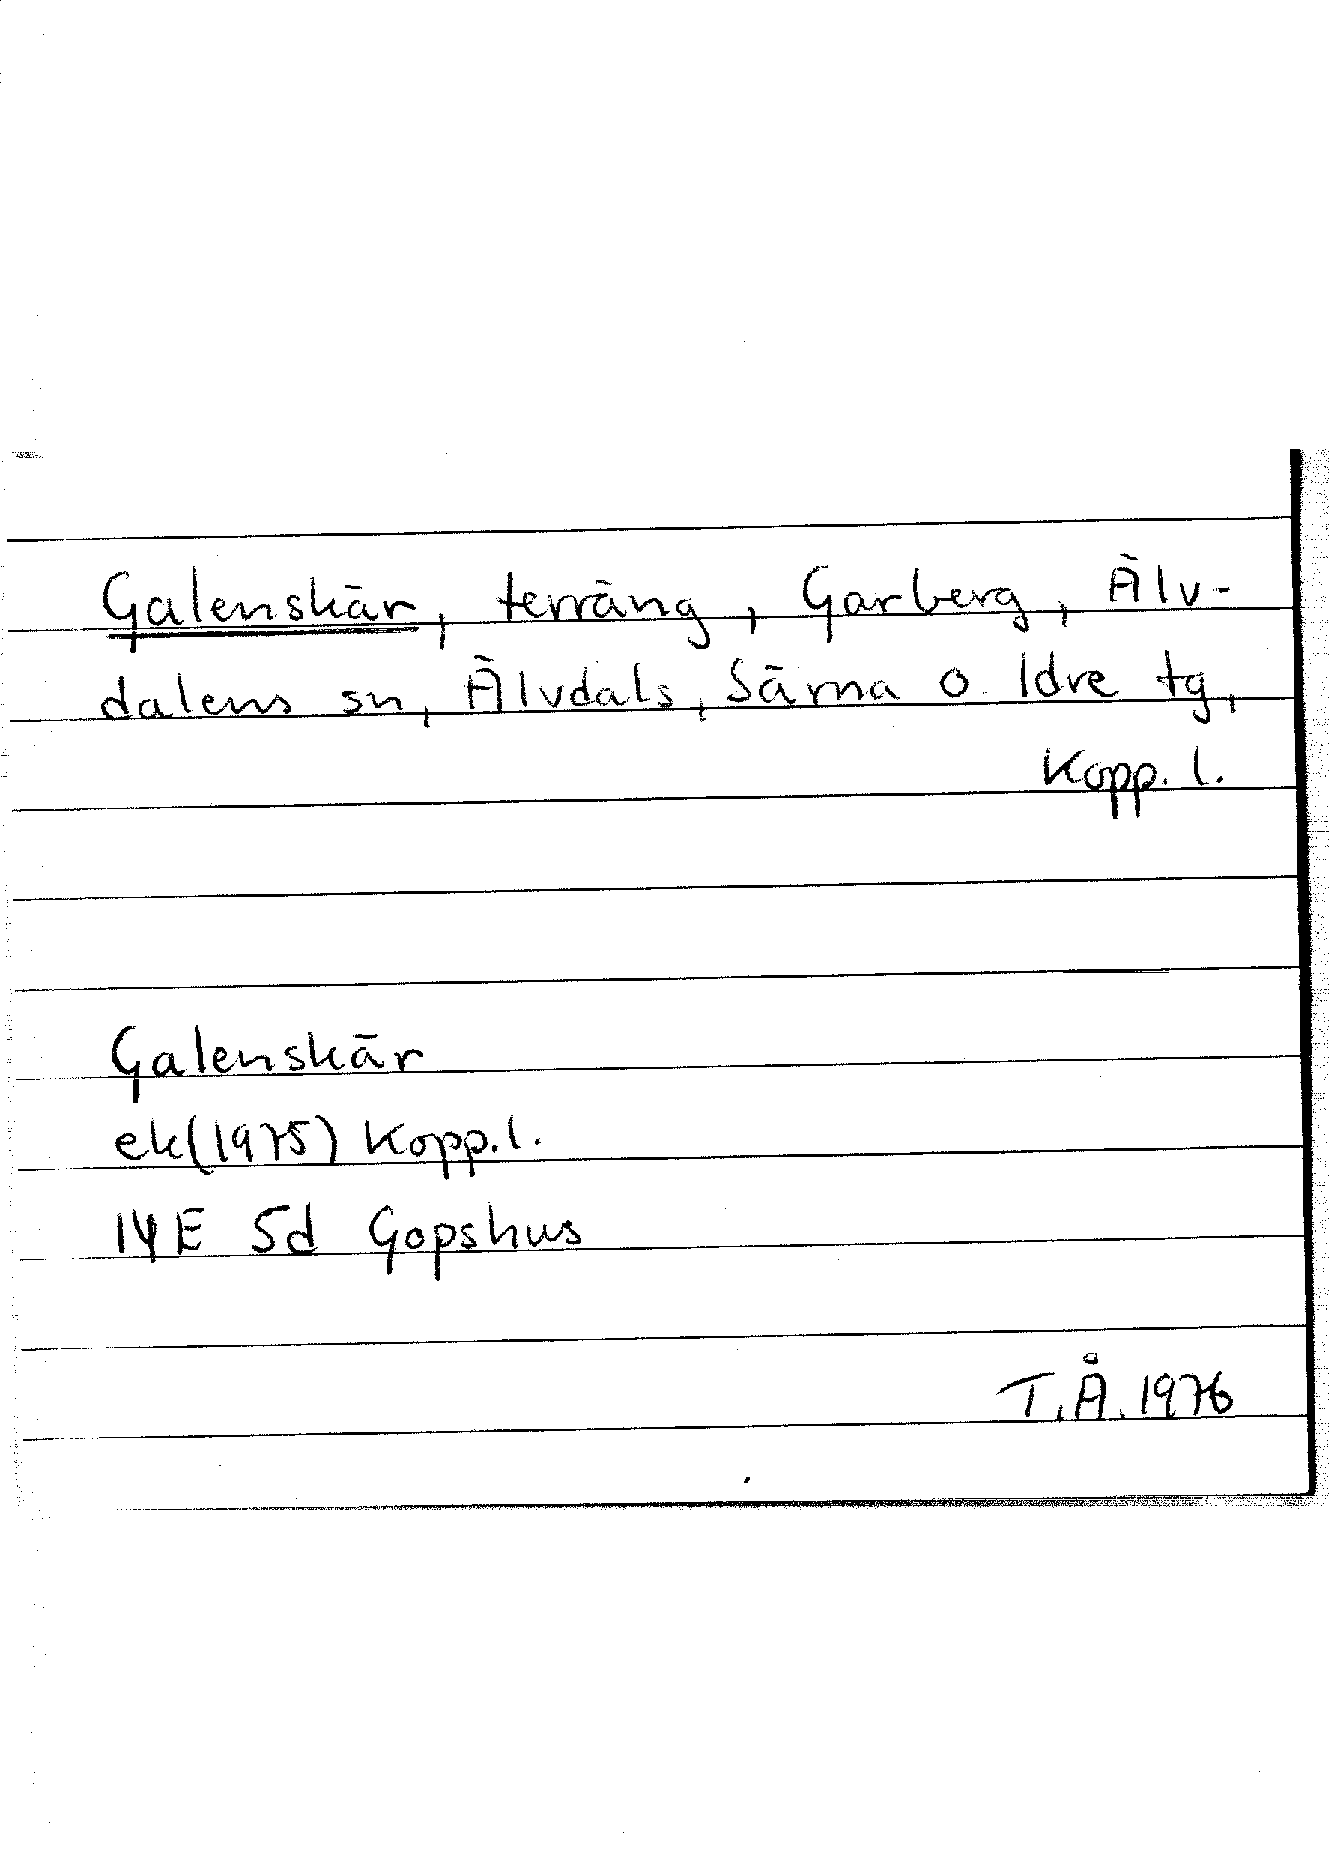 Galenskär, terräng, Garberg, Älv-
dalens sn, Älvdals, Särna o. Idre tg,
Kopp. l.
Galenskär
ek(1975) Kopp.l.
14E 5d Gopshus
T.Å.1976